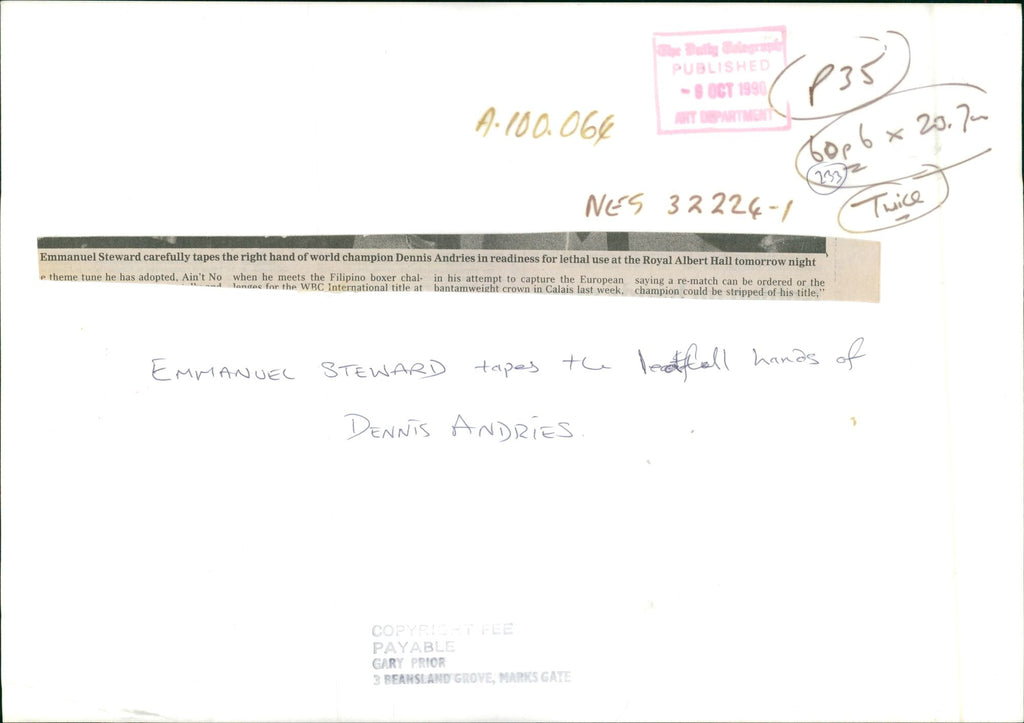 The Daily Telegraph
PUBLISHED
- 9 OCT 1990
ART DEPARTMENT
P35
60p6 x 20.7
233
Twice
A.100.064
NES 32224-1
Emmanuel Steward carefully tapes the right hand of world champion Dennis Andries in readiness for lethal use at the Royal Albert Hall tomorrow night
theme tune he has adopted, Ain't No
when he meets the Filipino boxer chal-
lenges for the WBC International title at
in his attempt to capture the European
bantamweight crown in Calais last week,
saying a re-match can be ordered or the
champion could be stripped of his title,"
EMMANUEL STEWARD tapes the hands of
DENNIS ANDRIES.
COPYRIGHT FEE
PAYABLE
GARY PRIOR
3 BEANSLAND GROVE, MARKS GATE